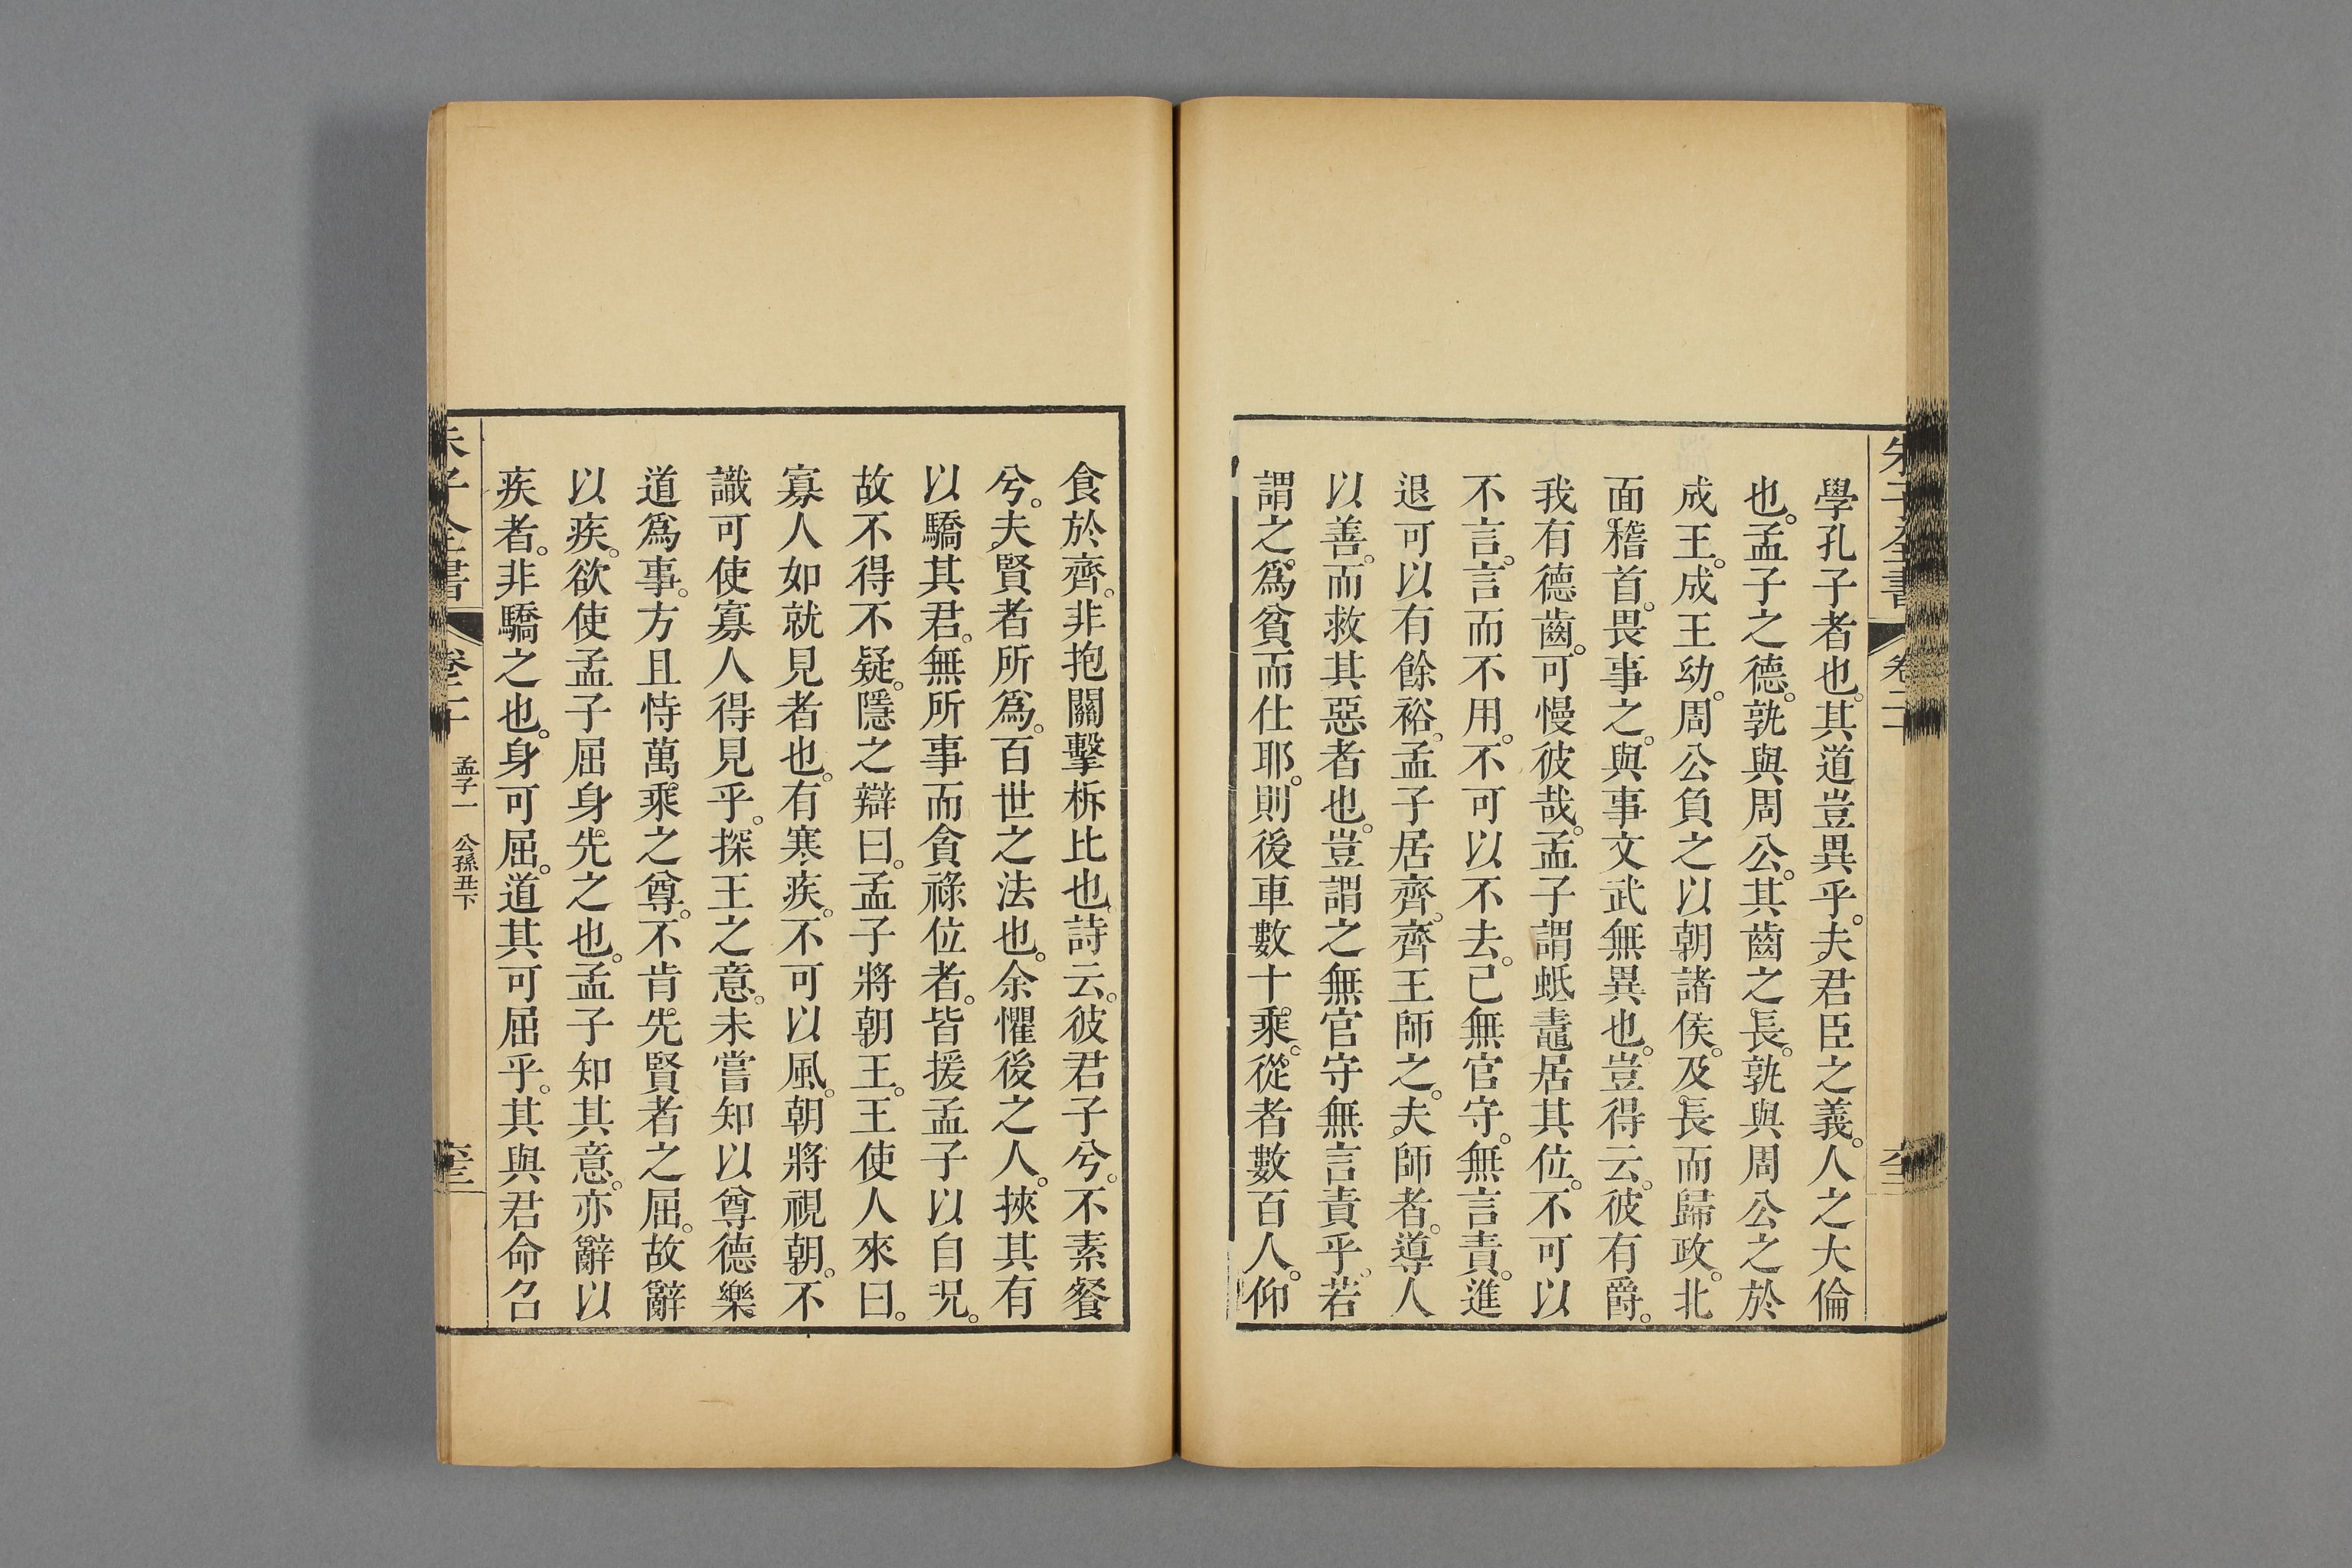 朱子全書
卷二十
學孔子者也。其道豈異乎。夫君臣之義。人之大倫
也。孟子之德。孰與周公。其齒之長。孰與周公之於
成王。成王幼。周公負之以朝諸侯。及長而歸政。北
面稽首。畏事之。與事文武無異也。豈得云。彼有爵。
我有德齒。可慢彼哉。孟子謂蚳鼃居其位。不可以
不言。言而不用。不可以不去。己無官守。無言責。進
退可以有餘裕。孟子居齊。齊王師之。夫師者。導人
以善。而救其惡者也。豈謂之無官守無言責乎。若
謂之爲貧而仕耶。則後車數十乘。從者數百人。仰
食於齊。非抱關擊柝比也。詩云。彼君子兮。不素餐
兮。夫賢者所爲。百世之法也。余懼後之人。挾其有
以驕其君。無所事而貪祿位者。皆援孟子以自况。
故不得不疑。隱之辯曰。孟子將朝王。王使人來曰。
寡人如就見者也。有寒疾。不可以風。朝將視朝。不
識可使寡人得見乎。探王之意。未嘗知以尊德樂
道爲事。方且恃萬乘之尊。不肯先賢者之屈。故辭
以疾。欲使孟子屈身先之也。孟子知其意。亦辭以
疾者。非驕之也。身可屈。道其可屈乎。其與君命召
朱子全書
卷二十
孟子一 公孫丑下